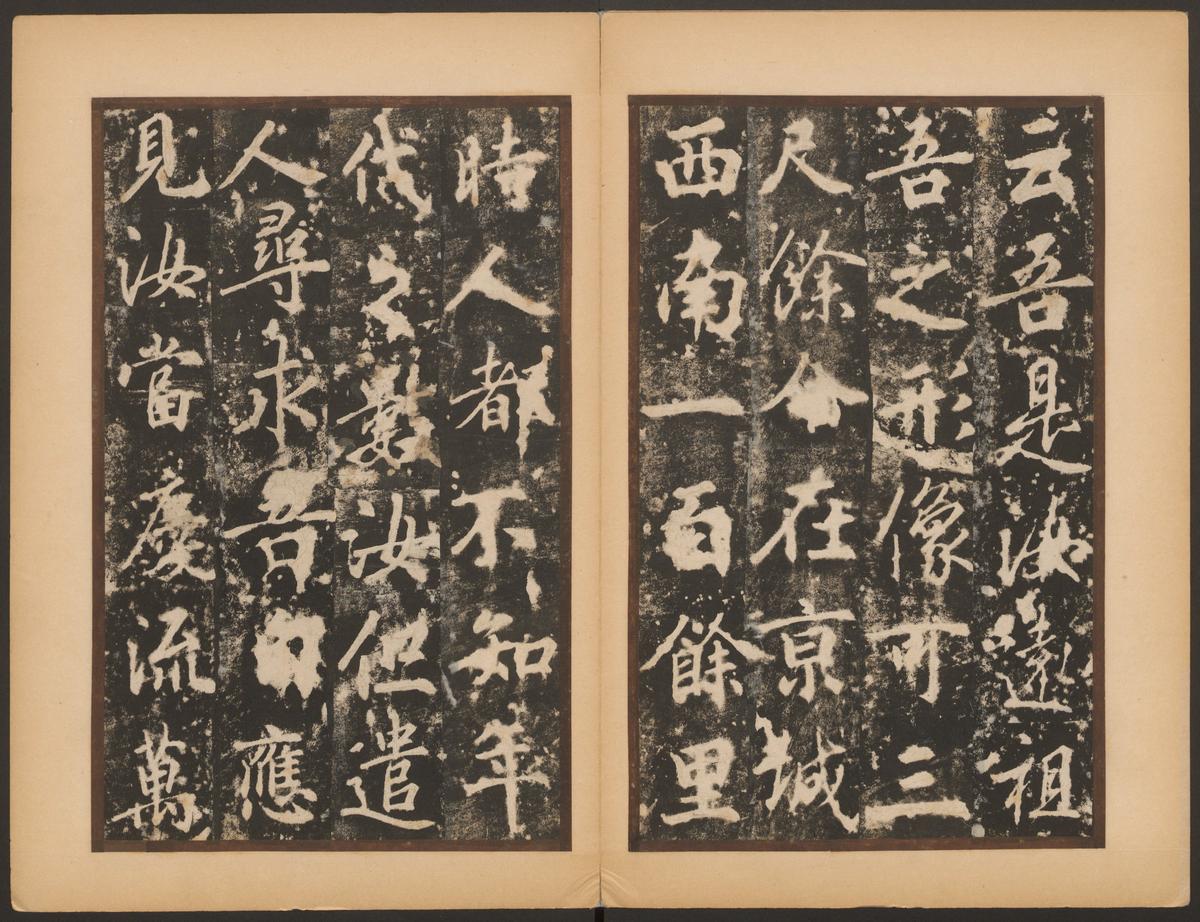 云吾是汝遠祖
吾之形像可三
尺餘今在京城
西南一百餘里
時人都不知年
代之數汝但遣
人尋求吾自應
見汝當慶流萬